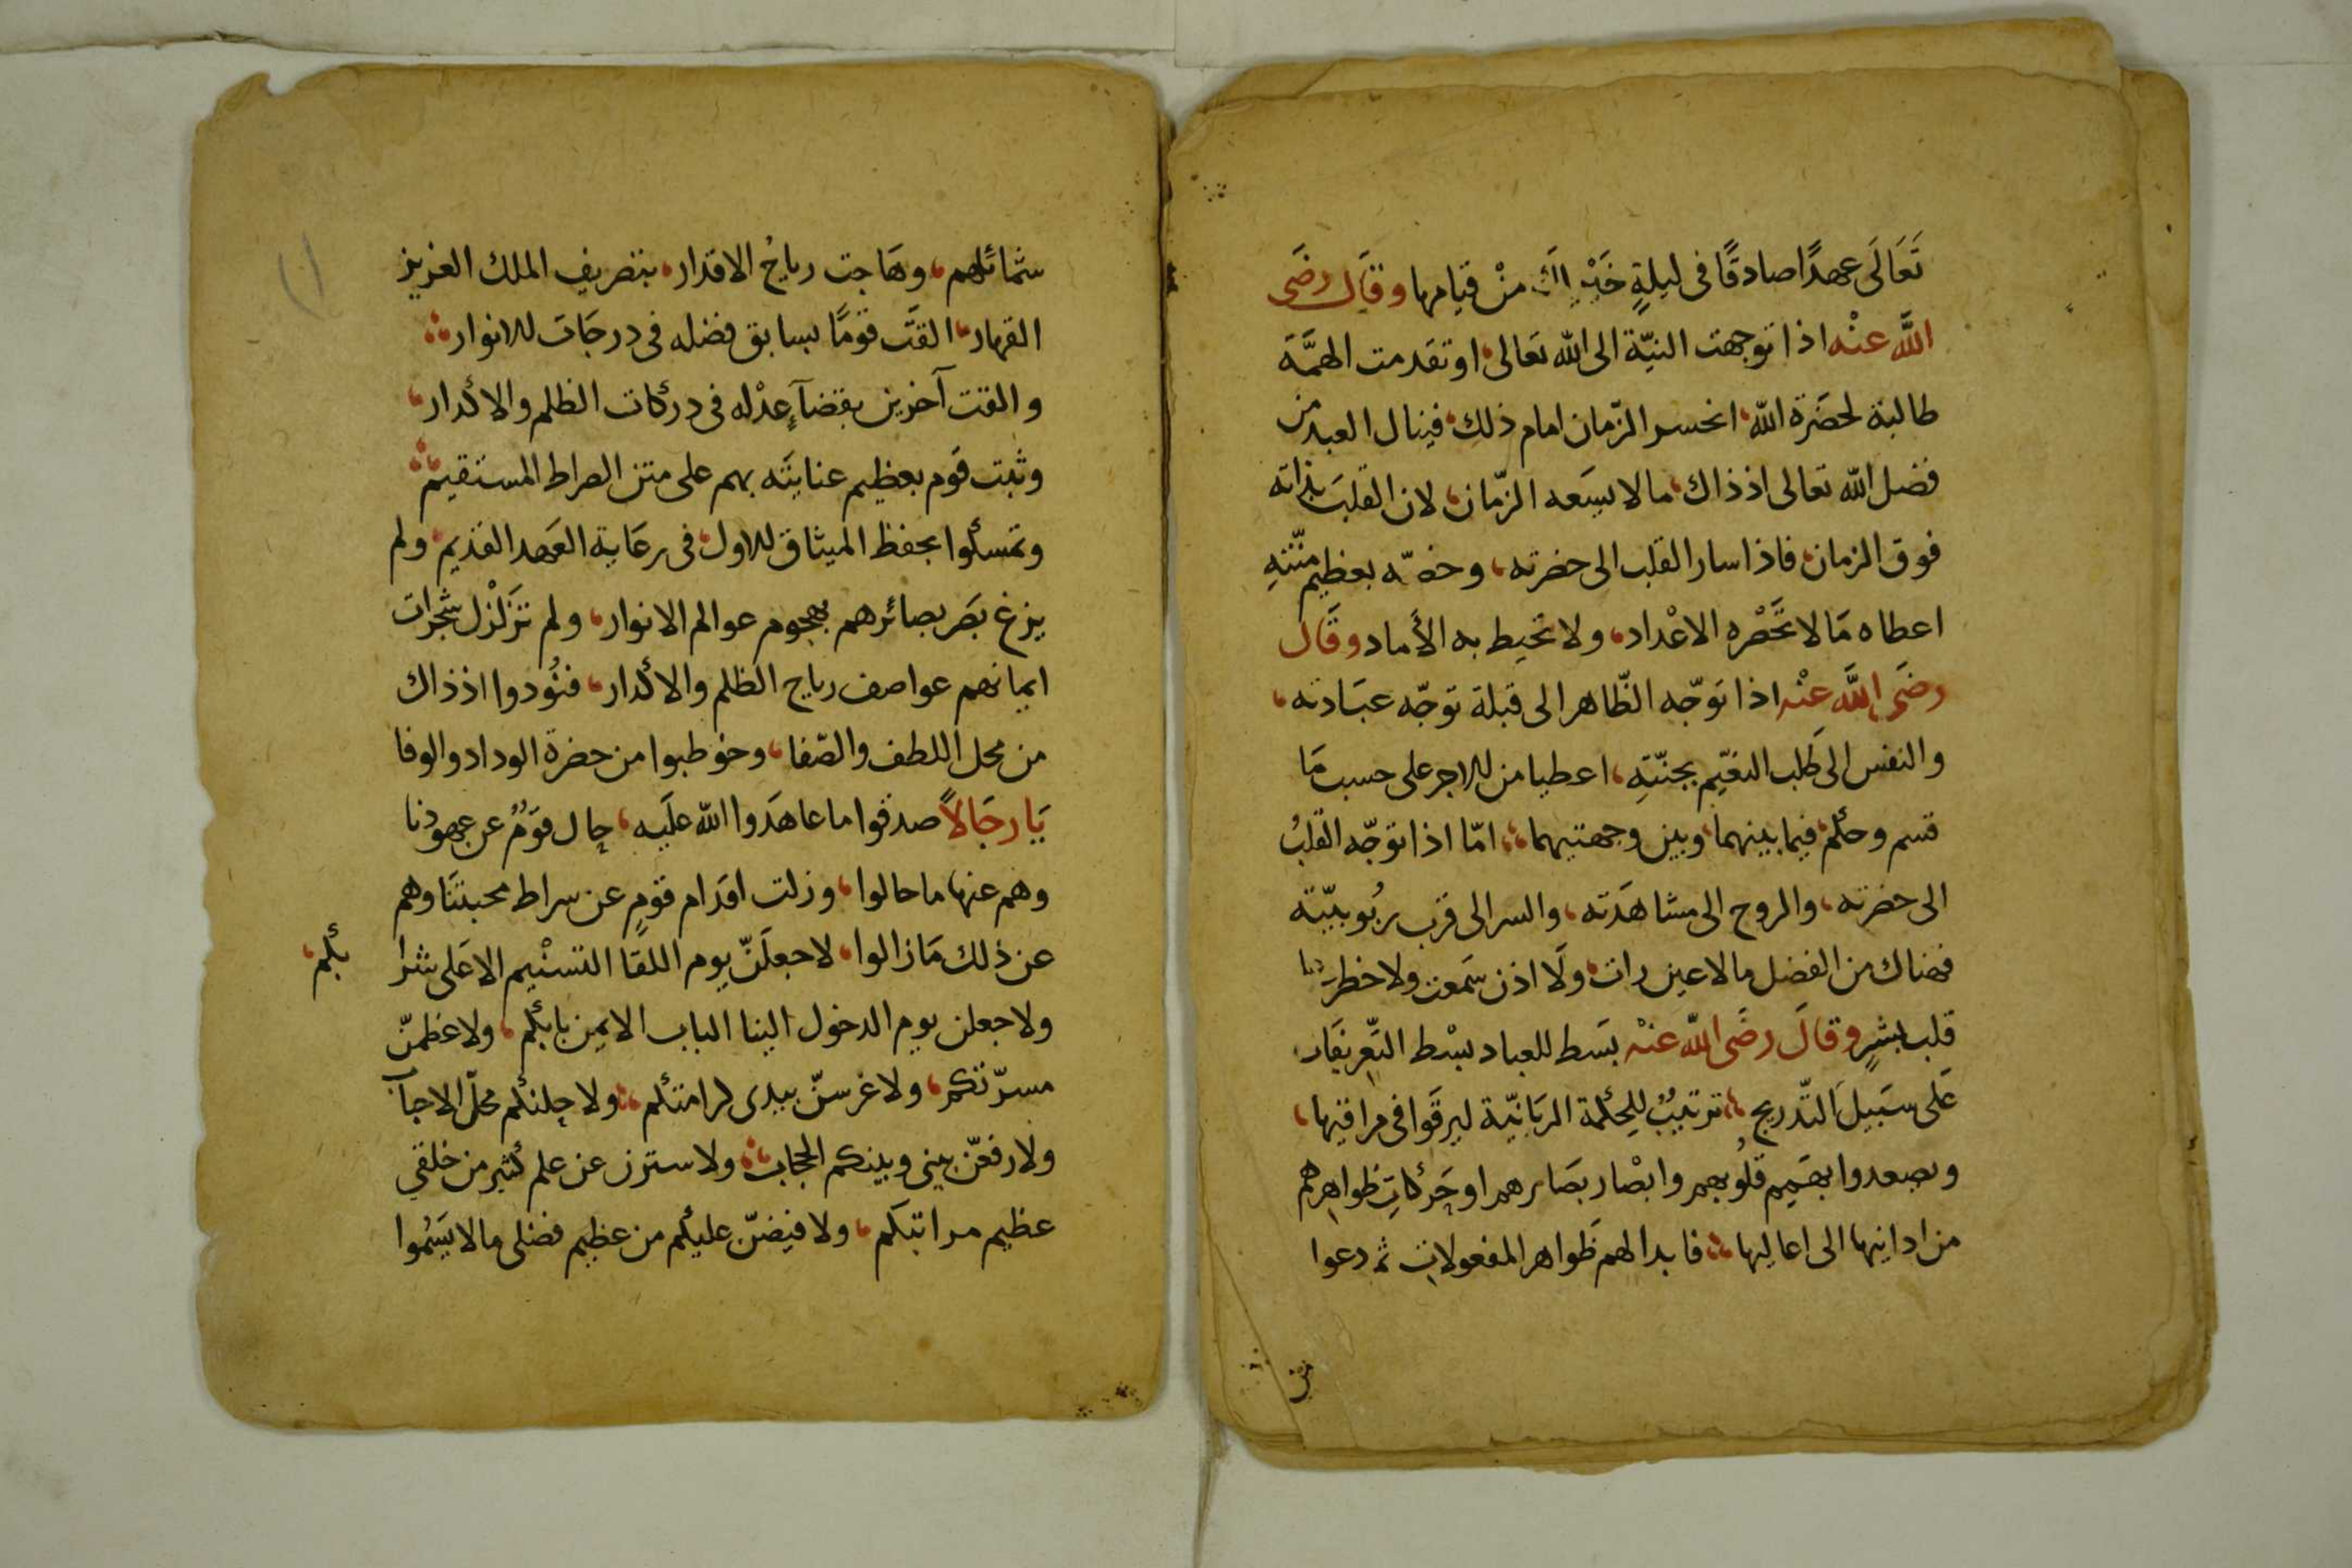 تَعَالَى عهدًا صادقًا فى ليلةٍ خَيْر لك منْ قيامها وقال رضَى
اللَّه عنْه اذا توجهت النيّة الى الله تعَالى، او تقدمت الهمَّة
طالبة لحضَرة الله، انحسر الزّمان امام ذلك، فينال العبد من
فضل الله تعالى اذ ذاك، مالا يسَعه الزّمان، لان القلبَ بذاته
فوق الزمان، فاذا سار القلب الى حضرته، وخصّه بعظيم منّتهِ
اعطاه مَا لا تحَصْره الاعْداد، ولا تحيط به الأماد وقَال
رضَى اللَّه عنْه اذا توجّه الظّاهر الى قبلة توجّه عبَادته،
والنفس الى طَلب النعيّم بجنّتهِ، اعطيا من الاجر على حسب مَا
قسم وحكم، فيما بينهما، وبين وجهتيهما، امّا اذا توجّه القلبُ
الى حضرته، والروح الى مشاهَدته، والسر الى قرب ربُوبيّته
فهناك من الفضل مالا عين رات، ولَا اذن سَمعت ولا خطر
قلب بشرٍ وقالَ رضَى اللّه عنْه بَسط للعباد بسْط التّعريفَات
عَلى سَبيل التّدريج، ترتيبٌ للحكمة الربَانيّة ليرقَوا فى مراقيها،
ويصعدوا بهَميم قلُوبهم وابْصار بصَايرهم اوحَركاتِ ظواهرهم
من ادانيها الى اعاليها، فابدا لهم ظَواهر المفعولات ثم دعوا
شمائلهم، وهَاجت رياحُ الاقدار، بتصريف الملك العزيز
القهار، القَت قومًا بسابق فضله فى درجَات الانوار،
والقت آخرين بقضآءِ عدْله فى دركات الظلم والاكدار،
وثبت قَوم بعظيم عنايتَه بهم على متن الصراط المستقيم،
وتمسكوا بحفظ الميثاق الاول، فى رعَاية العَهد القديم، ولم
يزغ بصَر بصائرهم بهجوم عوالم الانوار، ولم تزَلْزل شجرات
ايمانهم عواصف رياح الظلم والاكدار، فنُودوا اذ ذاك
من محل اللطف والصّفا، وخوطبوا من حضرة الوداد والوفا
يَا رجَالاً صدقوا ما عاهَدوا اللّه علَيه، حال قوَمٌ عن عهودنا
وهم عنها ما حالوا، وزلت اقدَام قومٍ عن سراط محبتنَا وهم
عن ذلك مَا زالوا، لاجعلَنّ يوم اللقَا التسنْيم الاعَلى شرا
بكم،
ولاجعلن يوم الدخول الينا الباب الايمن بابكم، ولاعظمنّ
مسرّتكم، ولاغرسنّ بيدى كرامتكم، ولاحلنكم محلّ الاحبآ
ولارفعنّ بينى وبينكم الحجاب، ولاسترن عن علم كثير من خلقي
عظيم مراتبكم، ولافيضنّ عليكم من عظيم فضلى مالا يَسُموا